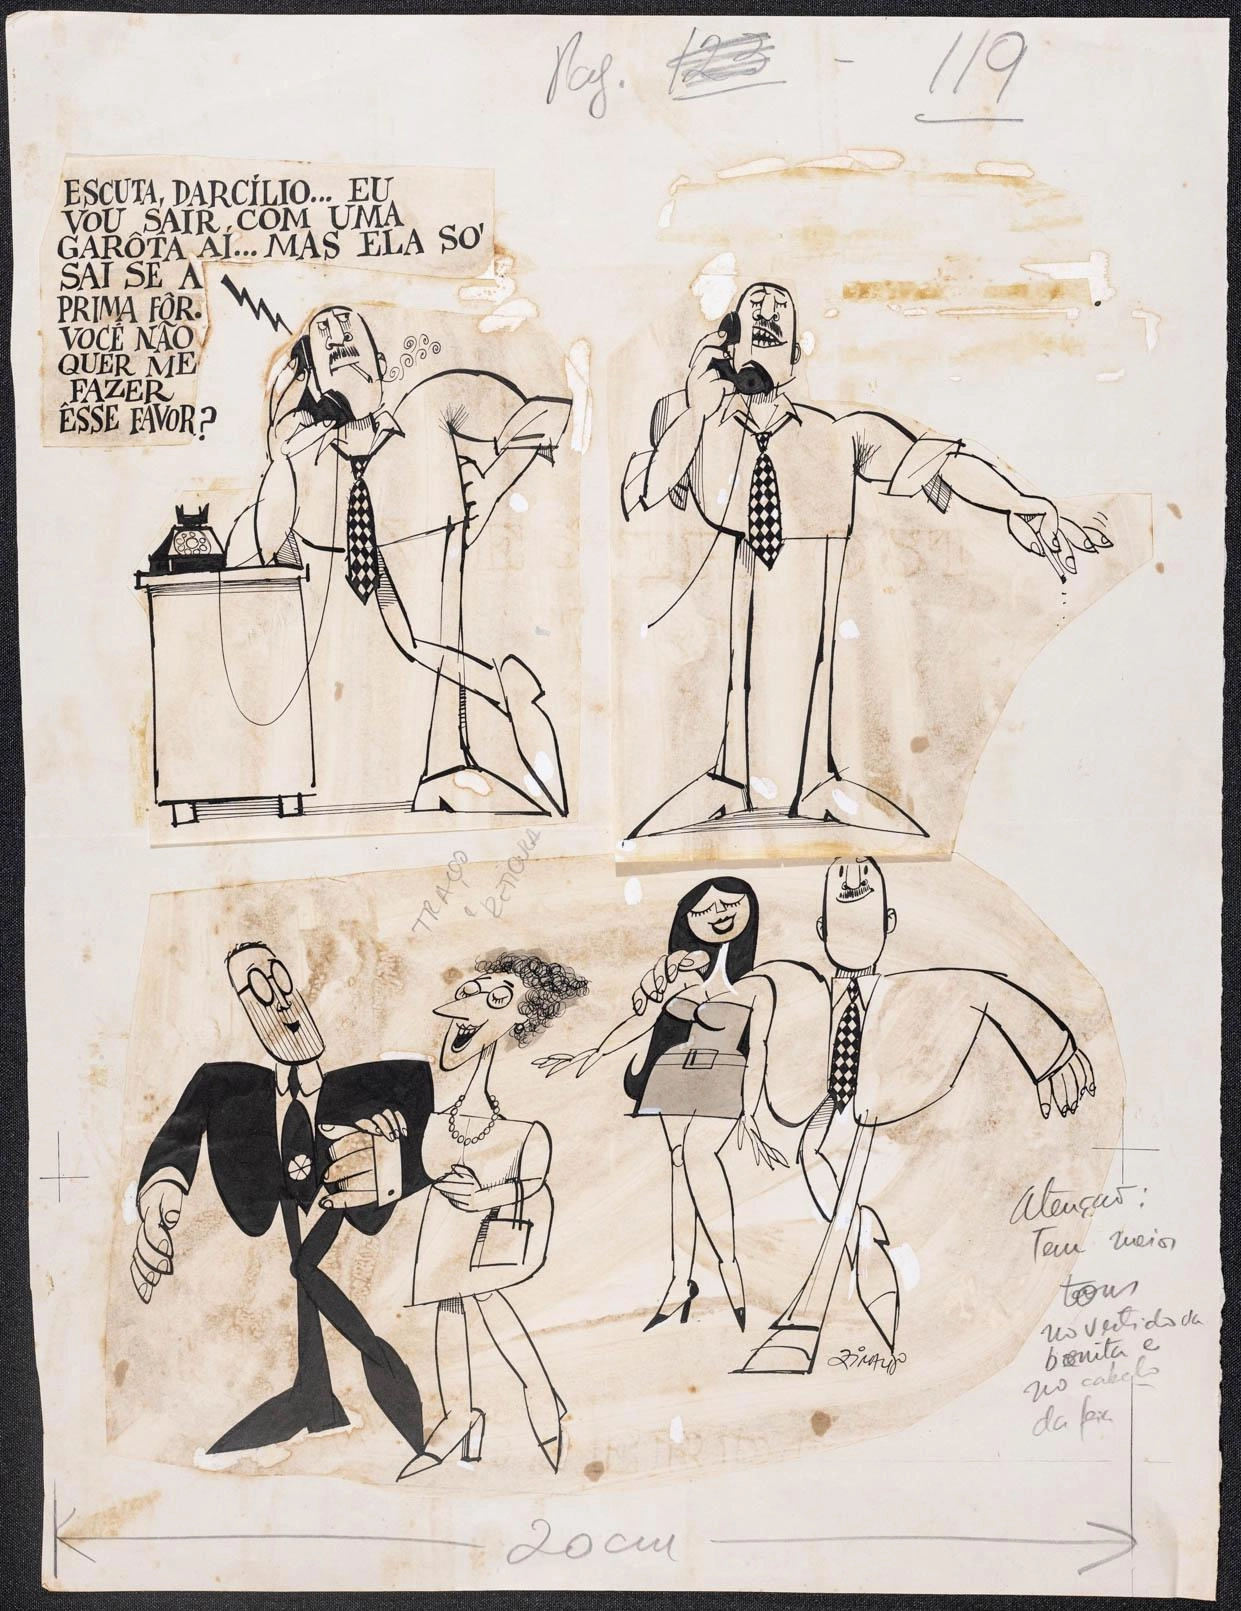 Pag. 123 - 119
ESCUTA, DARCÍLIO... EU
VOU SAIR COM UMA
GARÔTA AÍ... MAS ELA SÓ
SAI SE A
PRIMA FÔR.
VOCÊ NÃO
QUER ME
FAZER
ÊSSE FAVOR?
TRAÇO
E RETICULA
Atenção:
Tem meios
tons
no vestido da
bonita e
no cabelo
da feia
ZIRALDO
20 cm